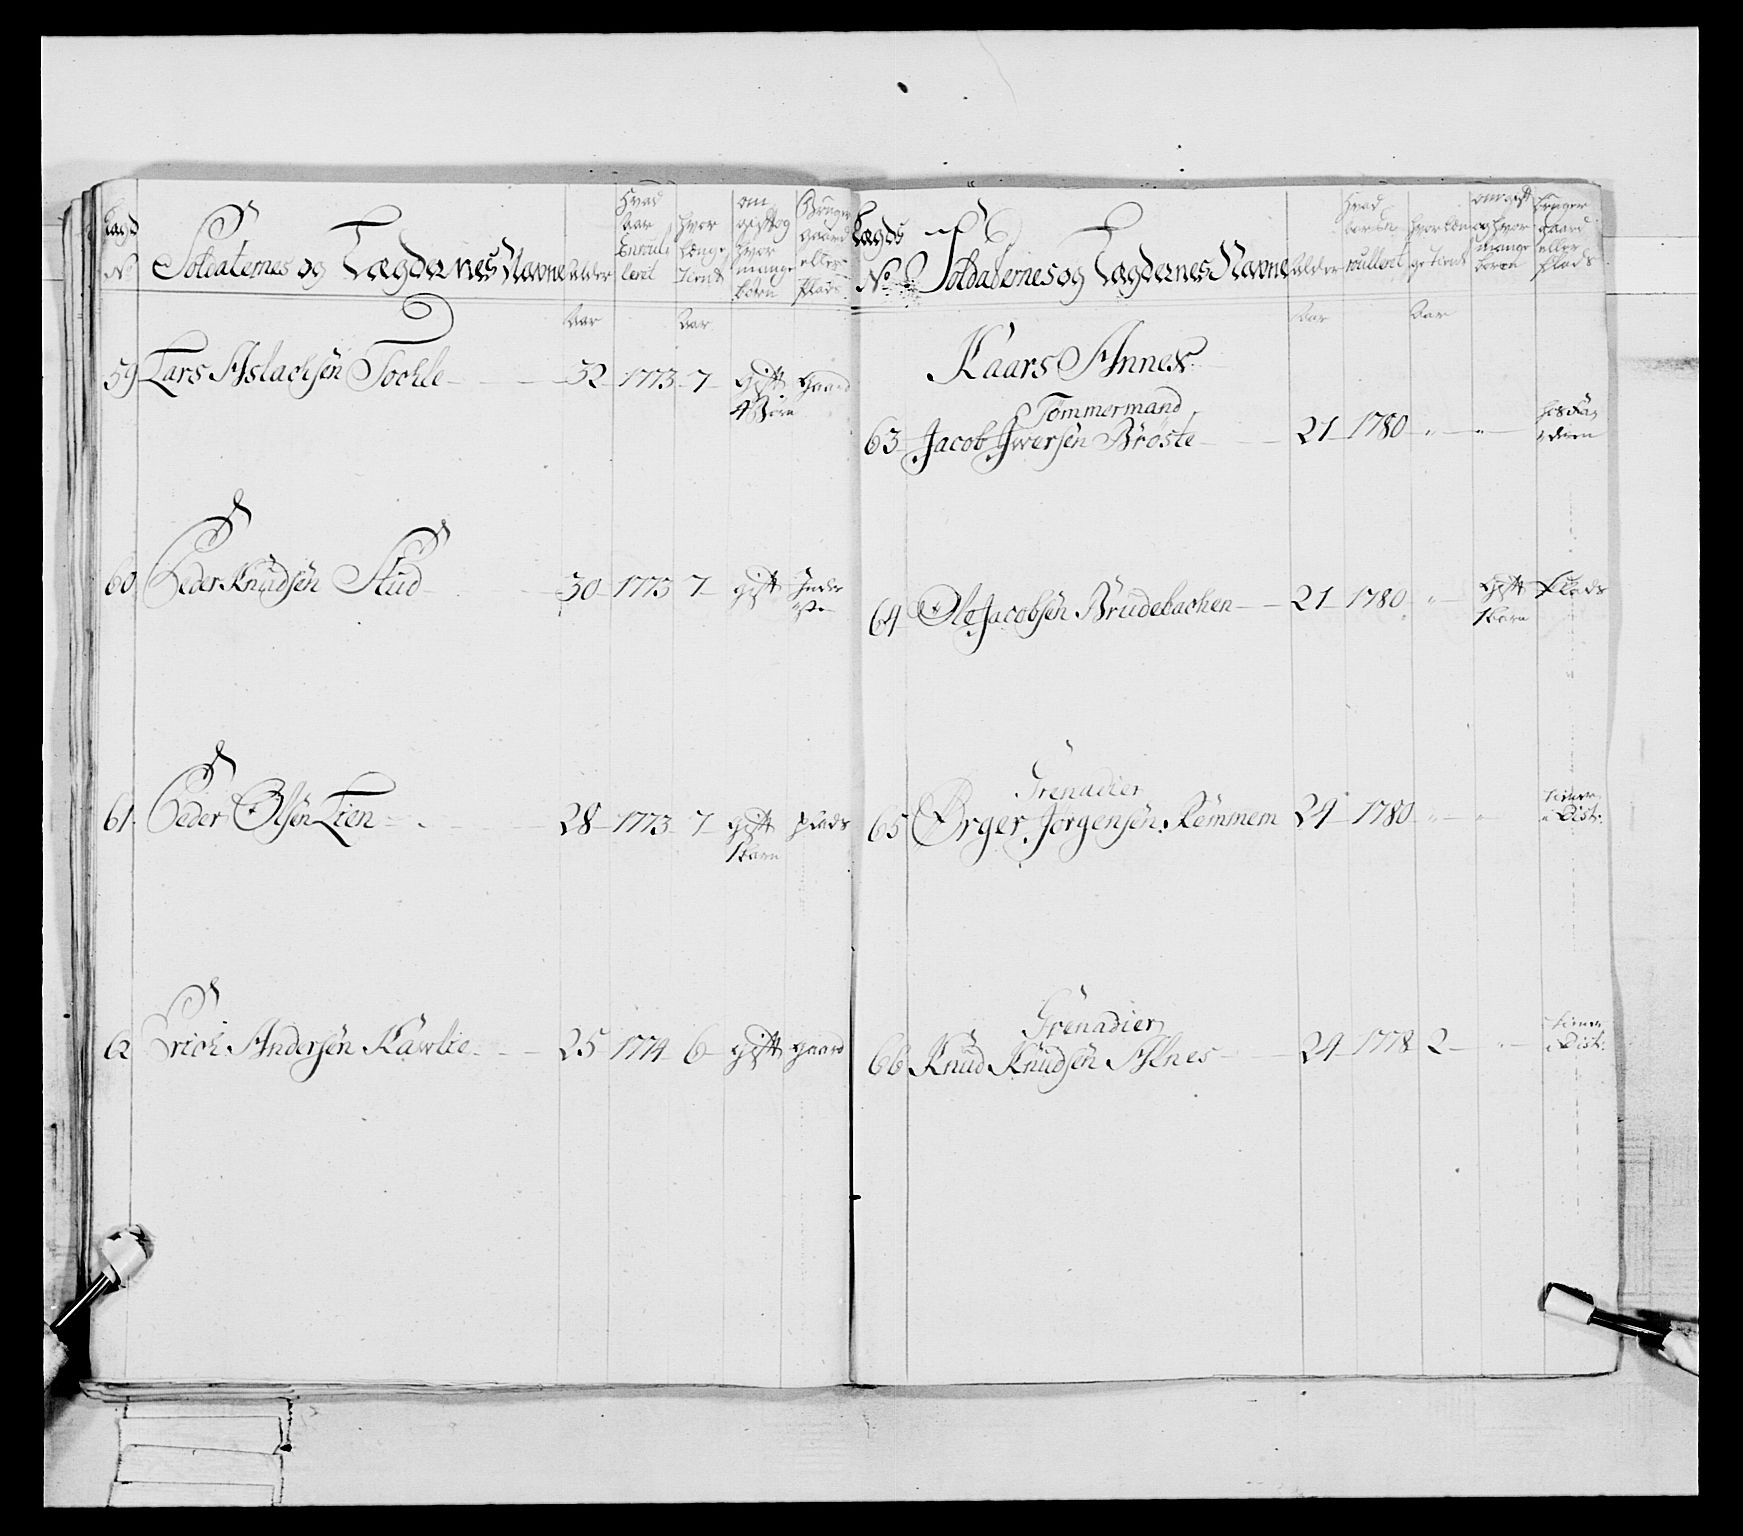 Lægd No
Soldaternes og Lægdernes Navne
Alder
Hvad Aar Enroulleret
hvor længe tient
om gift og hvor mange börn
Bruger gaard eller Plads
Aar
Aar
59 Lars Aslachsen Tochle 32 1773 7 gift Gaard
4 Börn
60 Peder Knudsen Stud 30 1773 7 gift Inder
ste
61 Peder Olsen Lien 28 1773 7 gift plads
1 barn
62 Erich Andersen Kawlie 25 1774 6 gift gaard
Lægds No
Soldaternes og Lægdernes Navne
Alder
Hvad Aar En roulleret
hvor længe tient
om gift og hvor mange börn
bruger gaard eller Plads
Aar
Aar
Kaars Annex
Tömmermand
63 Jacob Iwersen Bröste 21 1780 " "
64 Ole Jacobsen Brudebachen 21 1780 " Gift Plads
1 barn
Grenadier
65 Ørger Jörgensen Remmem 24 1780 " "
i Dist:
Grenadier
66 Knud Knudsen Alnes 24 1778 2 "
i Dist: